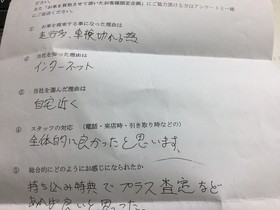 また「お車を買取させて頂いたお客様限定企画」にご協力頂ける方はアンケートと一緒
にご返信ください。
① お車を売却する事になった理由は
車検切れる為
② 当社を知った理由は
インターネット
③ 当社を選んだ理由は
自宅近く
④ スタッフの対応 (電話・来店時・引き取り時などの)
全体的に良かったと思います。
⑤ 総合的にどのようにお感じになられたか
持ち込み特典でプラス査定など
あれば良いと思った。